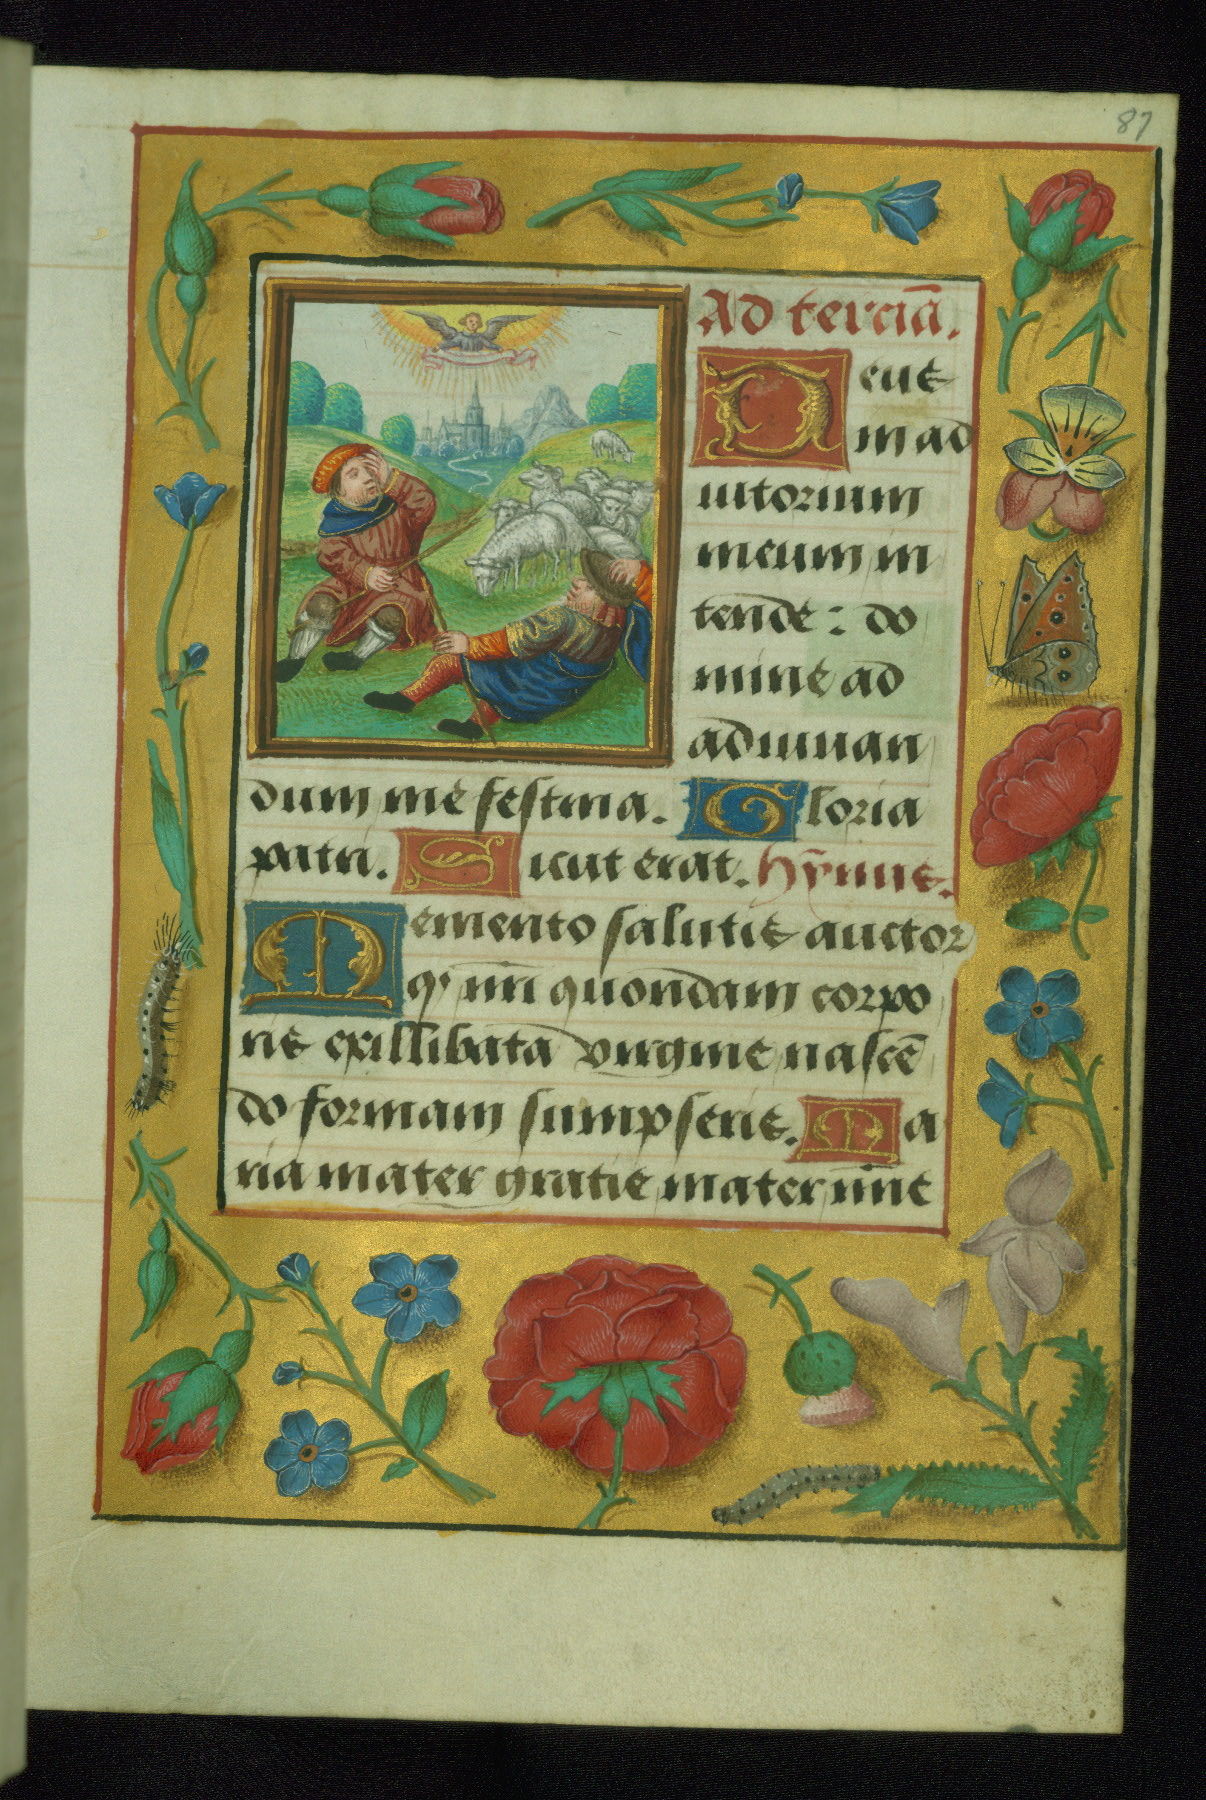 87
Ad terciā.
Deus
in ad
iutorium
meum in
tende: do
mine ad
adiuuan
dum me festina. Gloria
patri. Sicut erat. hȳnus.
Memento salutis auctor
qꝰ nr̄i quondam corpo
ris ex illibata virgine nascē
do formam sumpseris. Ma
ria mater gratie mater mīe